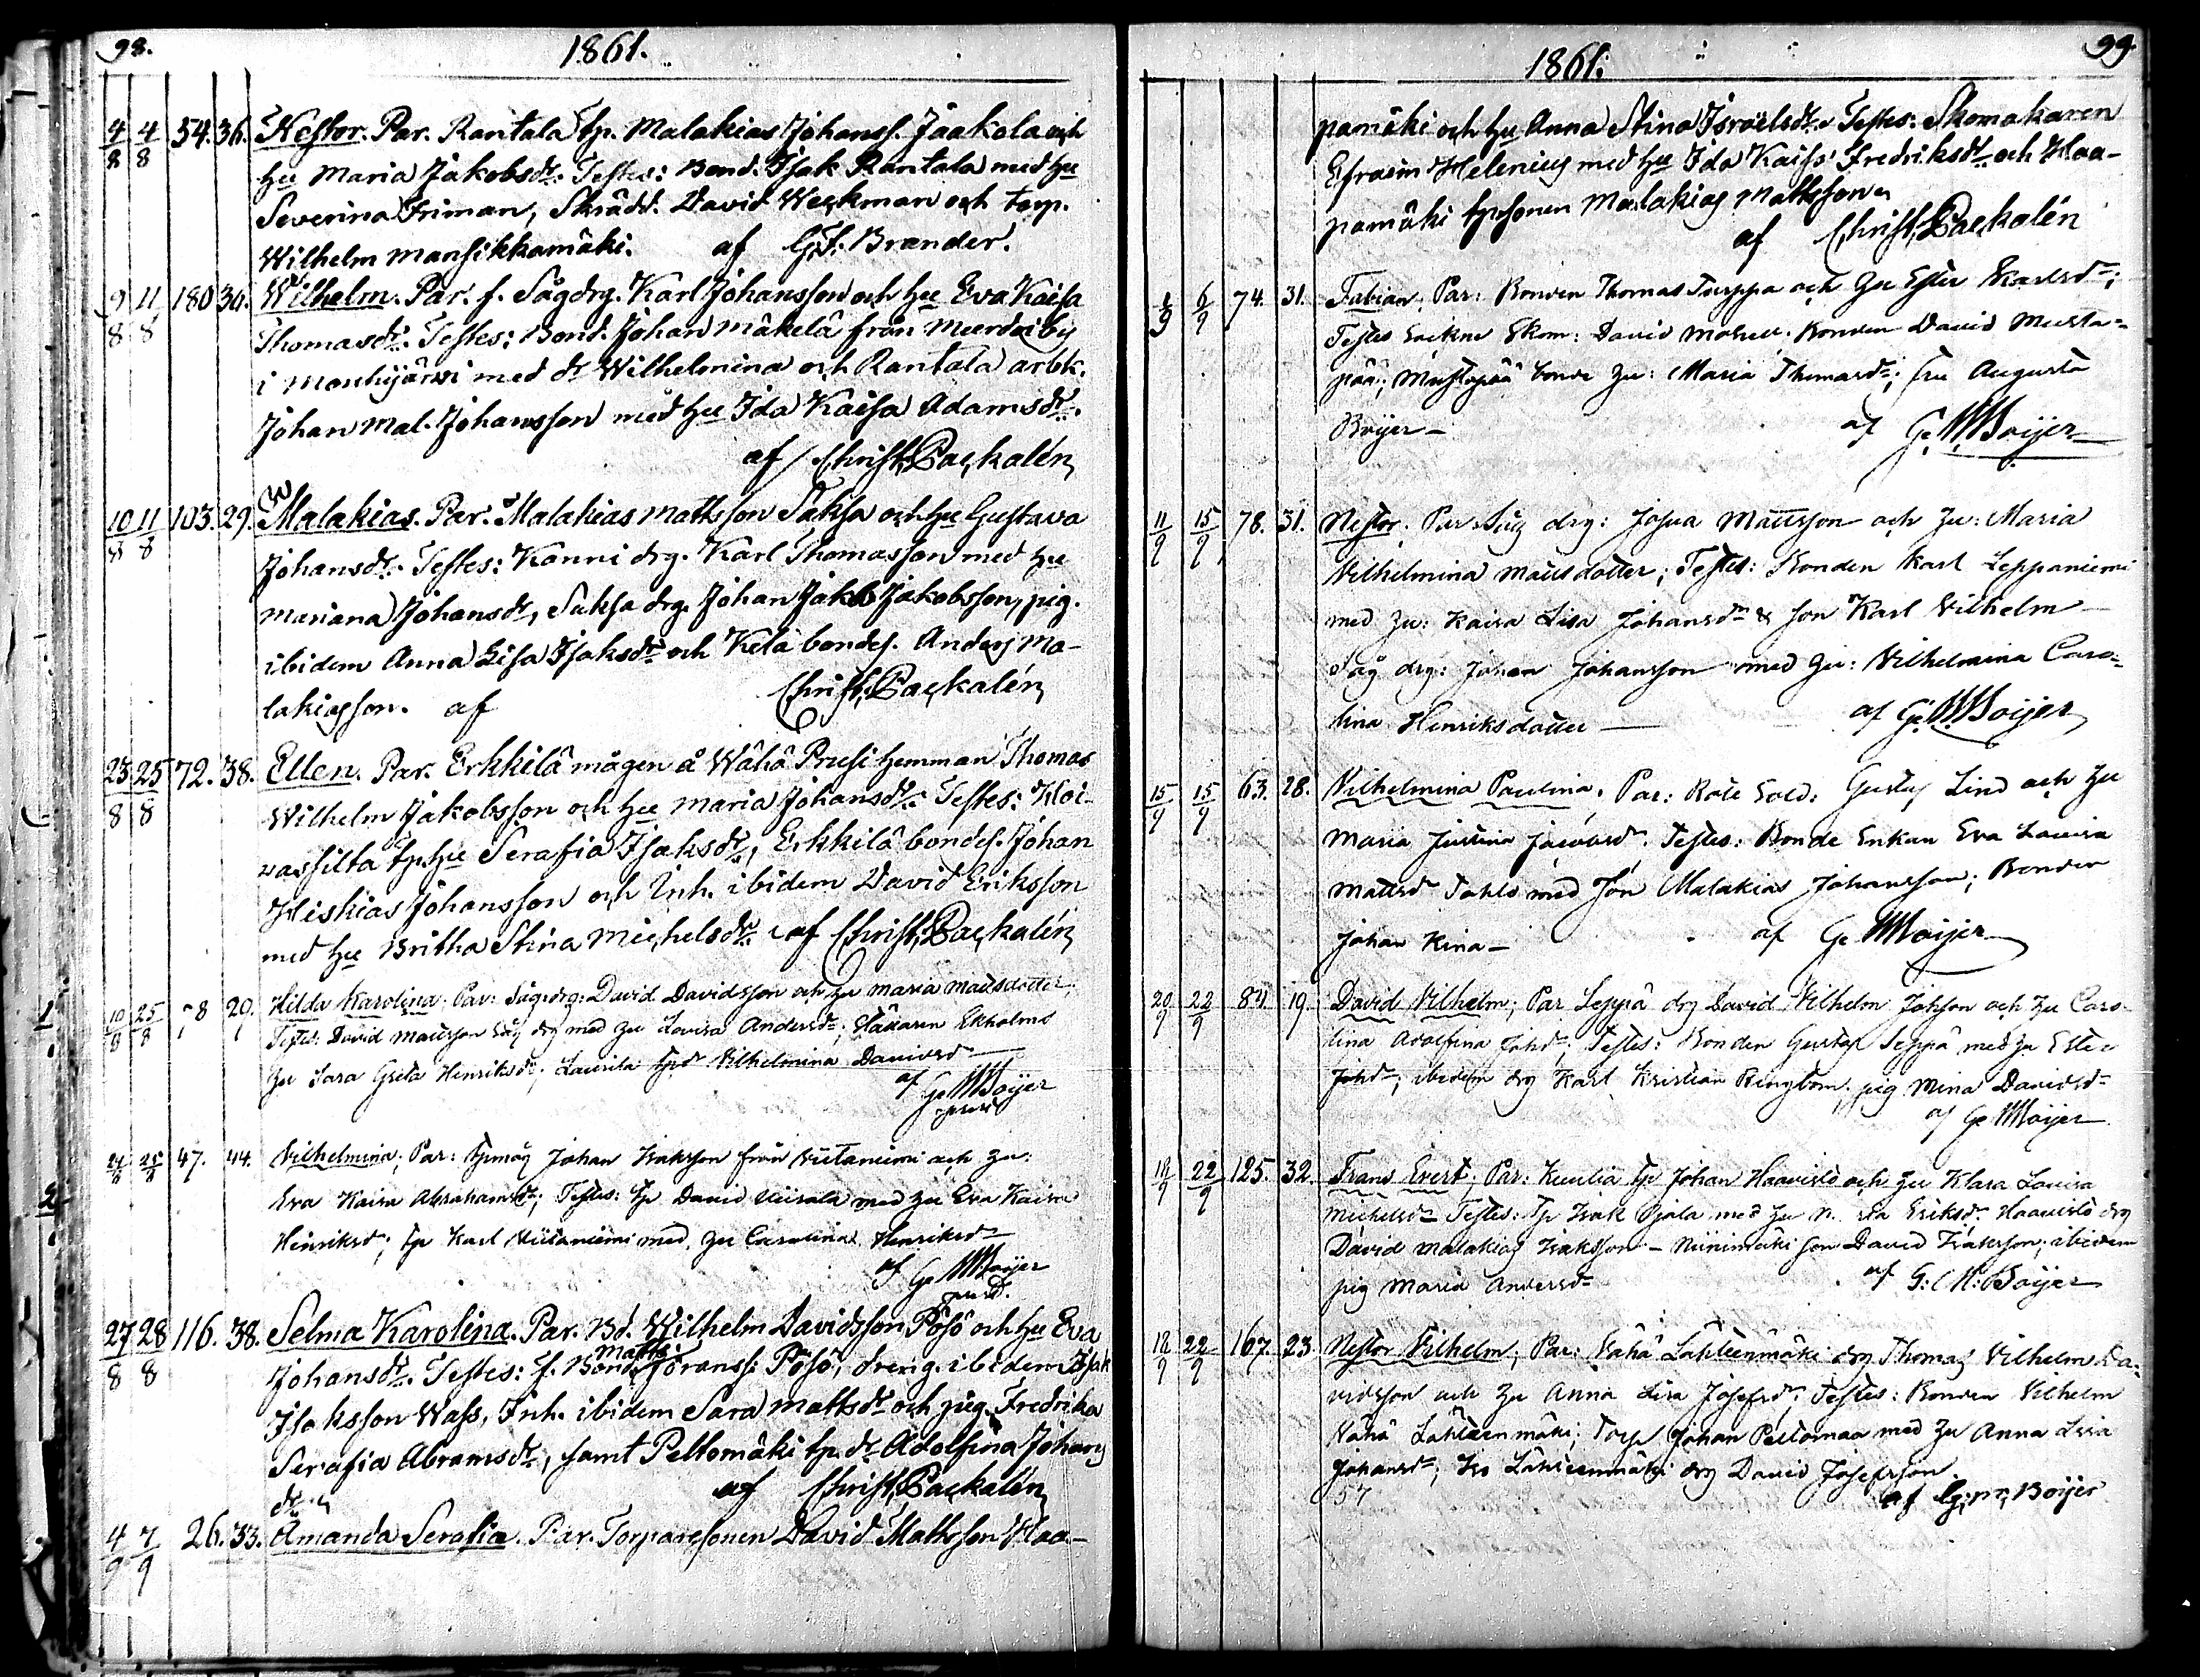 98.
1861.
4/8 4/8 54. 36. Nestor. Par. Rantala tp. Malakias Johanss. Jaakola och
hu Maria Jakobsdr. Testes: Bond. Isak Rantala med hu
Severina Friman, Skrädd. David Weckman och torp.
Wilhelm Mansikkamäki. af G.F. Brander.
9/8 11/8 180 30. Wilhelm. Par. f. Sågdrg. Karl Johansson och hu Eva Kaisa
Thomasdr. Testes: Bond. Johan Mäkelä från Meerdai by
i Mouhijärvi med dr Wilhelmina och Rantala arbk.
Johan Mal. Johansson med hu Ida Kaisa Adamsdr.
af Christ. Packalén
10/8 11/8 103. 29. Malakias. Par. Malakias Mattsson Saksa och hu Gustava
Johansdr. Testes: Kanni drg. Karl Thomasson med hu
Mariana Johansdr, Saksa drg. Johan Jakob Jakobsson, pig.
ibidem Anna Lisa Isaksdr och Kelä bondes. Anders Ma-
lakiasson. af Christ. Packalén
23/8 25/8 72. 38. Ellen. Par. Erkkilä mågen å Wähä Prusi hemman Thomas
Wilhelm Jakobsson och hu Maria Johansdr. Testes: Koi-
vassilta tp. hu Serafia Isaksdr, Erkkilä bondes. Johan
Hiskias Johansson och Inh. ibidem David Eriksson
med hu Britha Stina Michelsdr. af Christ. Packalén
10/8 25/8 78 29. Hilda Karolina. Par: Sågdrg: David Davidsson och hu Maria Mattsdotter;
Testes: David Mattsson Såg drg med hu Lovisa Andersdr; Ekholms
hu Sara Greta Henriksdr. Laurila tpdr Vilhelmina Davidsdr
af G. M Boijer
24/8 25/8 47. 44. Vilhelmina; Par: tpmåg Johan Isaksson från Viitaniemi och hu:
Eva Kaisa Abrahamsdr; Testes: tp David Uusitala med hu Eva Kaisa
Henriksdr; tp Karl Viitaniemi med hu Carolina Henriksdr
af G. M Boijer
27/8 28/8 116. 38. Selma Karolina. Par. Bd. Wilhelm Davidsson Pösö och hu Eva
Matts
Johansdr. Testes: f. Bond. Göranss. Pösö, dreng. ibidem Isak
Isaksson Wass, Inh. ibidem Sara Mattsdr och pig. Fredrika
Serafia Abramsdr, samt Peltomäki tp. dr Adolfina Johans
dr. af Christ. Packalén
4/9 7/9 26. 33. Amanda Serafia. Par. Torparesonen David Mattsson Haa-
1861.
99
pamäki och hu Anna Stina Israelsdr. Testes: Skomakaren
Efraim Helenius med hu Ida Kaisa Fredriksdr och Haa-
pamäki tpssonen Malakias Mattsson
af Christ. Packalén
1/9 6/9 74. 31. Fabian. Par: Bonden Thomas Turppa och hu Ester Karlsdr;
Testes Skom: David Bonden David Musta-
pää; Mustapää bonde hu: Maria Thomasdr; fru Augusta
Boijer — af G. M Boijer
11/9 15/9 78. 31. Nestor. Par: Såg drg: Josua Mattsson och hu: Maria
Vilhelmina Mattsdotter; Testes: Bonden Karl Leppaniemi
med hu: Kaisa Lisa Johansdr & son Karl Vilhelm —
Såg drg: Johan Johansson med hu: Vilhelmina Caro-
lina Henriksdotter — af G. M Boijer
15/9 15/9 63. 28. Vilhelmina Paulina. Par: Rote Sold: Gustaf Lind och hu
Maria Justina Jacobsdr. Testes: Bonde Enkan Eva Lovisa
Mattsdr Tahlo med Son Malakias Johansson; Bonden
Johan Kina — af G. M Boijer
20/9 22/9 84. 19. David Vilhelm; Par Seppä drg David Vilhelm Johsson och hu Caro-
lina Adolfina Johdr; Testes: Bonden Gustaf Seppä med hu Ester
Johdr; ibidem drg Karl Kristian Ringbom, pig Mina Davidsdr
af G. M Boijer
18/9 22/9 125. 32. Frans Evert; Par: Kuulia tp Johan Haavisto och hu Klara Lovisa
Michelsdr Testes: tp Isak Ojala med hu Eriksdr. Haavisto drg
David Malakias Isaksson — Niinimäki son David Isaksson; ibidem
pig Maria Andersdr af G: M: Boijer
18/9 22/9 167. 23 Nestor Vilhelm; Par: Vähä Lähteenmäki drg Thomas Vilhelm Da-
vidsson och hu Anna Lisa Josefsdr; Testes: Bonden Vilhelm
Vähä Lähteenmäki; Torp Johan Peltomaa med hu Anna Lisa
Johansdr; Iso Lähteenmäki drg David Josefsson.
57 af G. M. Boijer